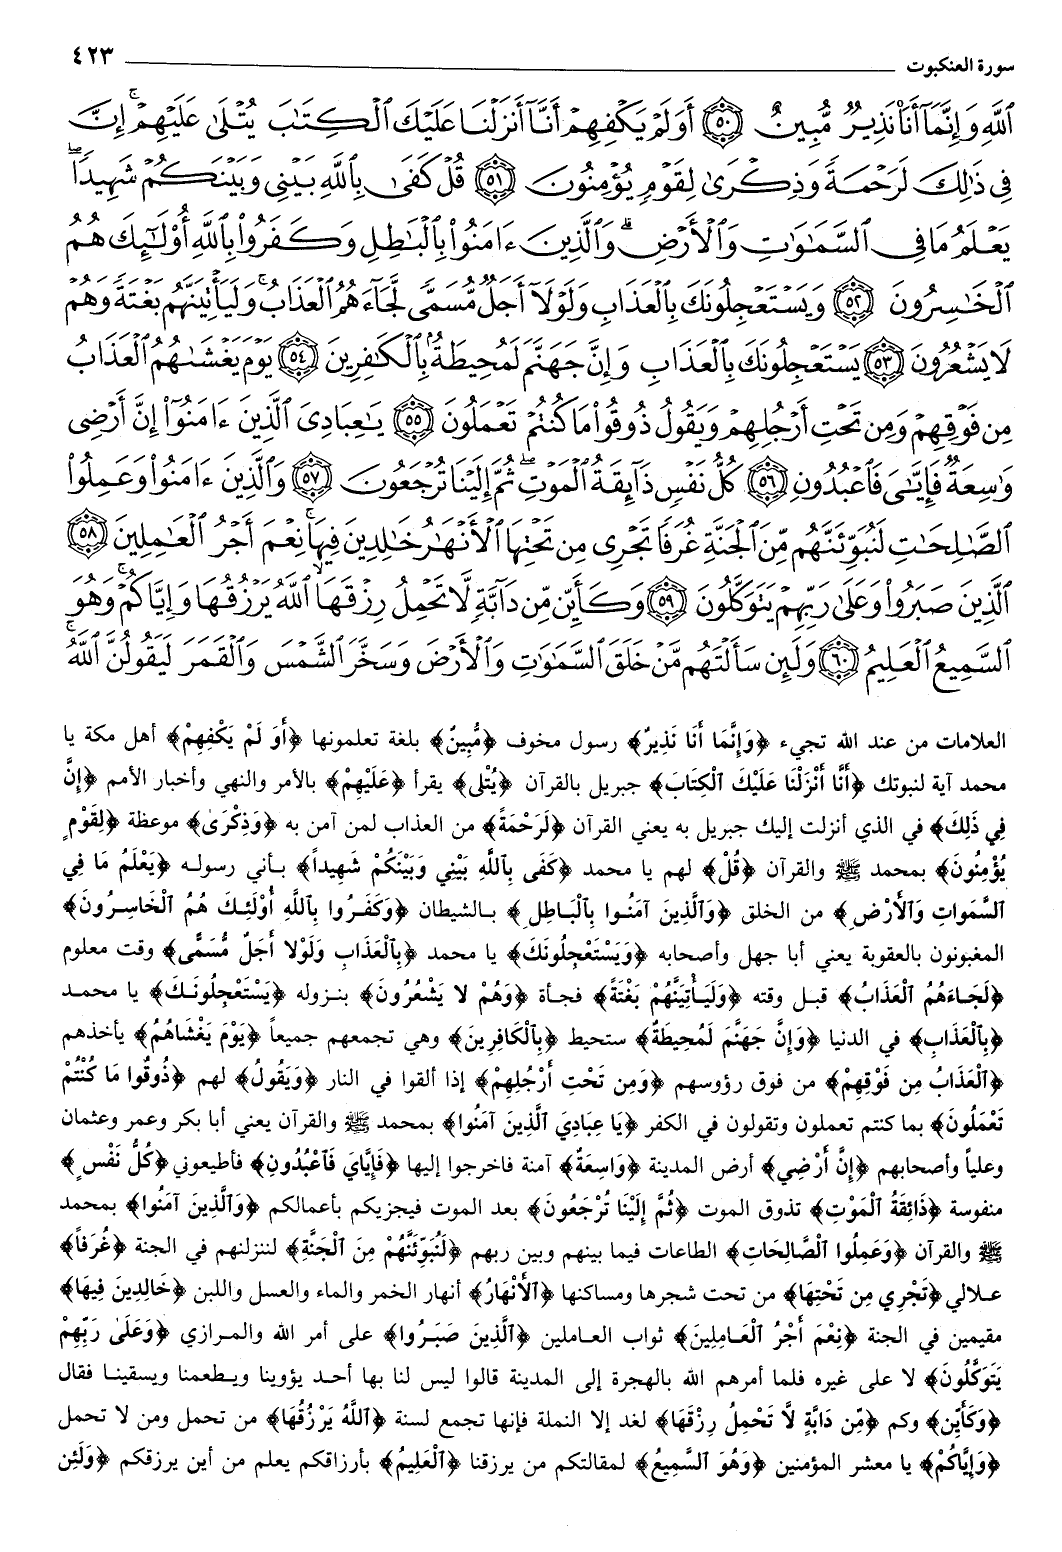 سورة العنكبوت ٤٢٣
ٱللَّهِ وَإِنَّمَآ أَنَا۠ نَذِيرٌ مُّبِينٌ ﴿٥٠﴾ أَوَلَمْ يَكْفِهِمْ أَنَّآ أَنزَلْنَا عَلَيْكَ ٱلْكِتَٰبَ يُتْلَىٰ عَلَيْهِمْ ۚ إِنَّ
فِى ذَٰلِكَ لَرَحْمَةً وَذِكْرَىٰ لِقَوْمٍ يُؤْمِنُونَ ﴿٥١﴾ قُلْ كَفَىٰ بِٱللَّهِ بَيْنِى وَبَيْنَكُمْ شَهِيدًا ۖ
يَعْلَمُ مَا فِى ٱلسَّمَٰوَٰتِ وَٱلْأَرْضِ ۗ وَٱلَّذِينَ ءَامَنُوا۟ بِٱلْبَٰطِلِ وَكَفَرُوا۟ بِٱللَّهِ أُو۟لَٰٓئِكَ هُمُ
ٱلْخَٰسِرُونَ ﴿٥٢﴾ وَيَسْتَعْجِلُونَكَ بِٱلْعَذَابِ وَلَوْلَآ أَجَلٌ مُّسَمًّى لَّجَآءَهُمُ ٱلْعَذَابُ ۚ وَلَيَأْتِيَنَّهُم بَغْتَةً وَهُمْ
لَا يَشْعُرُونَ ﴿٥٣﴾ يَسْتَعْجِلُونَكَ بِٱلْعَذَابِ وَإِنَّ جَهَنَّمَ لَمُحِيطَةٌۢ بِٱلْكَٰفِرِينَ ﴿٥٤﴾ يَوْمَ يَغْشَىٰهُمُ ٱلْعَذَابُ
مِن فَوْقِهِمْ وَمِن تَحْتِ أَرْجُلِهِمْ وَيَقُولُ ذُوقُوا۟ مَا كُنتُمْ تَعْمَلُونَ ﴿٥٥﴾ يَٰعِبَادِىَ ٱلَّذِينَ ءَامَنُوٓا۟ إِنَّ أَرْضِى
وَٰسِعَةٌ فَإِيَّٰىَ فَٱعْبُدُونِ ﴿٥٦﴾ كُلُّ نَفْسٍ ذَآئِقَةُ ٱلْمَوْتِ ۖ ثُمَّ إِلَيْنَا تُرْجَعُونَ ﴿٥٧﴾ وَٱلَّذِينَ ءَامَنُوا۟ وَعَمِلُوا۟
ٱلصَّٰلِحَٰتِ لَنُبَوِّئَنَّهُم مِّنَ ٱلْجَنَّةِ غُرَفًا تَجْرِى مِن تَحْتِهَا ٱلْأَنْهَٰرُ خَٰلِدِينَ فِيهَا ۚ نِعْمَ أَجْرُ ٱلْعَٰمِلِينَ ﴿٥٨﴾
ٱلَّذِينَ صَبَرُوا۟ وَعَلَىٰ رَبِّهِمْ يَتَوَكَّلُونَ ﴿٥٩﴾ وَكَأَيِّن مِّن دَآبَّةٍ لَّا تَحْمِلُ رِزْقَهَا ٱللَّهُ يَرْزُقُهَا وَإِيَّاكُمْ ۚ وَهُوَ
ٱلسَّمِيعُ ٱلْعَلِيمُ ﴿٦٠﴾ وَلَئِن سَأَلْتَهُم مَّنْ خَلَقَ ٱلسَّمَٰوَٰتِ وَٱلْأَرْضَ وَسَخَّرَ ٱلشَّمْسَ وَٱلْقَمَرَ لَيَقُولُنَّ ٱللَّهُ ۖ
العلامات من عند الله تجيء ﴿وَإِنَّمَا أَنَا نَذِيرٌ﴾ رسول مخوف ﴿مُّبِينٌ﴾ بلغة تعلمونها ﴿أَوَ لَمْ يَكْفِهِمْ﴾ أهل مكة يا
محمد آية لنبوتك ﴿أَنَّا أَنْزَلْنَا عَلَيْكَ ٱلْكِتَابَ﴾ جبريل بالقرآن ﴿يُتْلى﴾ يقرأ ﴿عَلَيْهِمْ﴾ بالأمر والنهي وأخبار الأمم ﴿إِنَّ
فِي ذَلِكَ﴾ في الذي أنزلت إليك جبريل به يعني القرآن ﴿لَرَحْمَةً﴾ من العذاب لمن آمن به ﴿وَذِكْرَى﴾ موعظة ﴿لِقَوْمٍ
يُؤْمِنُونَ﴾ بمحمد ﷺ والقرآن ﴿قُلْ﴾ لهم يا محمد ﴿كَفَى بِٱللَّهِ بَيْنِي وَبَيْنَكُمْ شَهِيداً﴾ بأني رسوله ﴿يَعْلَمُ مَا فِي
ٱلسَّمَواتِ وَٱلْأَرْضِ﴾ من الخلق ﴿وَٱلَّذِينَ آمَنُوا بِٱلْبَاطِلِ﴾ بالشيطان ﴿وَكَفَرُوا بِٱللَّهِ أُوْلَئِكَ هُمُ ٱلْخَاسِرُونَ﴾
المغبونون بالعقوبة يعني أبا جهل وأصحابه ﴿وَيَسْتَعْجِلُونَكَ﴾ يا محمد ﴿بِٱلْعَذَابِ وَلَوْلا أَجَلٌ مُّسَمًّى﴾ وقت معلوم
﴿لَجَاءَهُمُ ٱلْعَذَابُ﴾ قبل وقته ﴿وَلَيَأْتِيَنَّهُمْ بَغْتَةً﴾ فجأة ﴿وَهُمْ لا يَشْعُرُونَ﴾ بنزوله ﴿يَسْتَعْجِلُونَكَ﴾ يا محمد
﴿بِٱلْعَذَابِ﴾ في الدنيا ﴿وَإِنَّ جَهَنَّمَ لَمُحِيطَةٌ﴾ ستحيط ﴿بِٱلْكَافِرِينَ﴾ وهي تجمعهم جميعاً ﴿يَوْمَ يَغْشَاهُمُ﴾ يأخذهم
﴿ٱلْعَذَابُ مِن فَوْقِهِمْ﴾ من فوق رؤوسهم ﴿وَمِن تَحْتِ أَرْجُلِهِمْ﴾ إذا ألقوا في النار ﴿وَيَقُولُ﴾ لهم ﴿ذُوقُوا مَا كُنْتُمْ
تَعْمَلُونَ﴾ بما كنتم تعملون وتقولون في الكفر ﴿يَا عِبَادِيَ ٱلَّذِينَ آمَنُوا﴾ بمحمد ﷺ والقرآن يعني أبا بكر وعمر وعثمان
وعلياً وأصحابهم ﴿إِنَّ أَرْضِي﴾ أرض المدينة ﴿وَاسِعَةٌ﴾ آمنة فاخرجوا إليها ﴿فَإِيَّايَ فَٱعْبُدُونِ﴾ فأطيعوني ﴿كُلُّ نَفْسٍ﴾
منفوسة ﴿ذَائِقَةُ ٱلْمَوْتِ﴾ تذوق الموت ﴿ثُمَّ إِلَيْنَا تُرْجَعُونَ﴾ بعد الموت فيجزيكم بأعمالكم ﴿وَٱلَّذِينَ آمَنُوا﴾ بمحمد
ﷺ والقرآن ﴿وَعَمِلُوا ٱلصَّالِحَاتِ﴾ الطاعات فيما بينهم وبين ربهم ﴿لَنُبَوِّئَنَّهُمْ مِنَ ٱلْجَنَّةِ﴾ لننزلنهم في الجنة ﴿غُرَفاً﴾
علالي ﴿تَجْرِي مِن تَحْتِهَا﴾ من تحت شجرها ومساكنها ﴿ٱلْأَنْهَارُ﴾ أنهار الخمر والماء والعسل واللبن ﴿خَالِدِينَ فِيهَا﴾
مقيمين في الجنة ﴿نِعْمَ أَجْرُ ٱلْعَامِلِينَ﴾ ثواب العاملين ﴿ٱلَّذِينَ صَبَرُوا﴾ على أمر الله والمرازي ﴿وَعَلَىٰ رَبِّهِمْ
يَتَوَكَّلُونَ﴾ لا على غيره فلما أمرهم الله بالهجرة إلى المدينة قالوا ليس لنا بها أحد يؤوينا ويطعمنا ويسقينا فقال
﴿وَكَأَيِّن﴾ وكم ﴿مِّن دَابَّةٍ لَّا تَحْمِلُ رِزْقَهَا﴾ لغد إلا النملة فإنها تجمع لسنة ﴿ٱللَّهُ يَرْزُقُهَا﴾ من تحمل ومن لا تحمل
﴿وَإِيَّاكُمْ﴾ يا معشر المؤمنين ﴿وَهُوَ ٱلسَّمِيعُ﴾ لمقالتكم من يرزقنا ﴿ٱلْعَلِيمُ﴾ بأرزاقكم يعلم من أين يرزقكم ﴿وَلَئِن